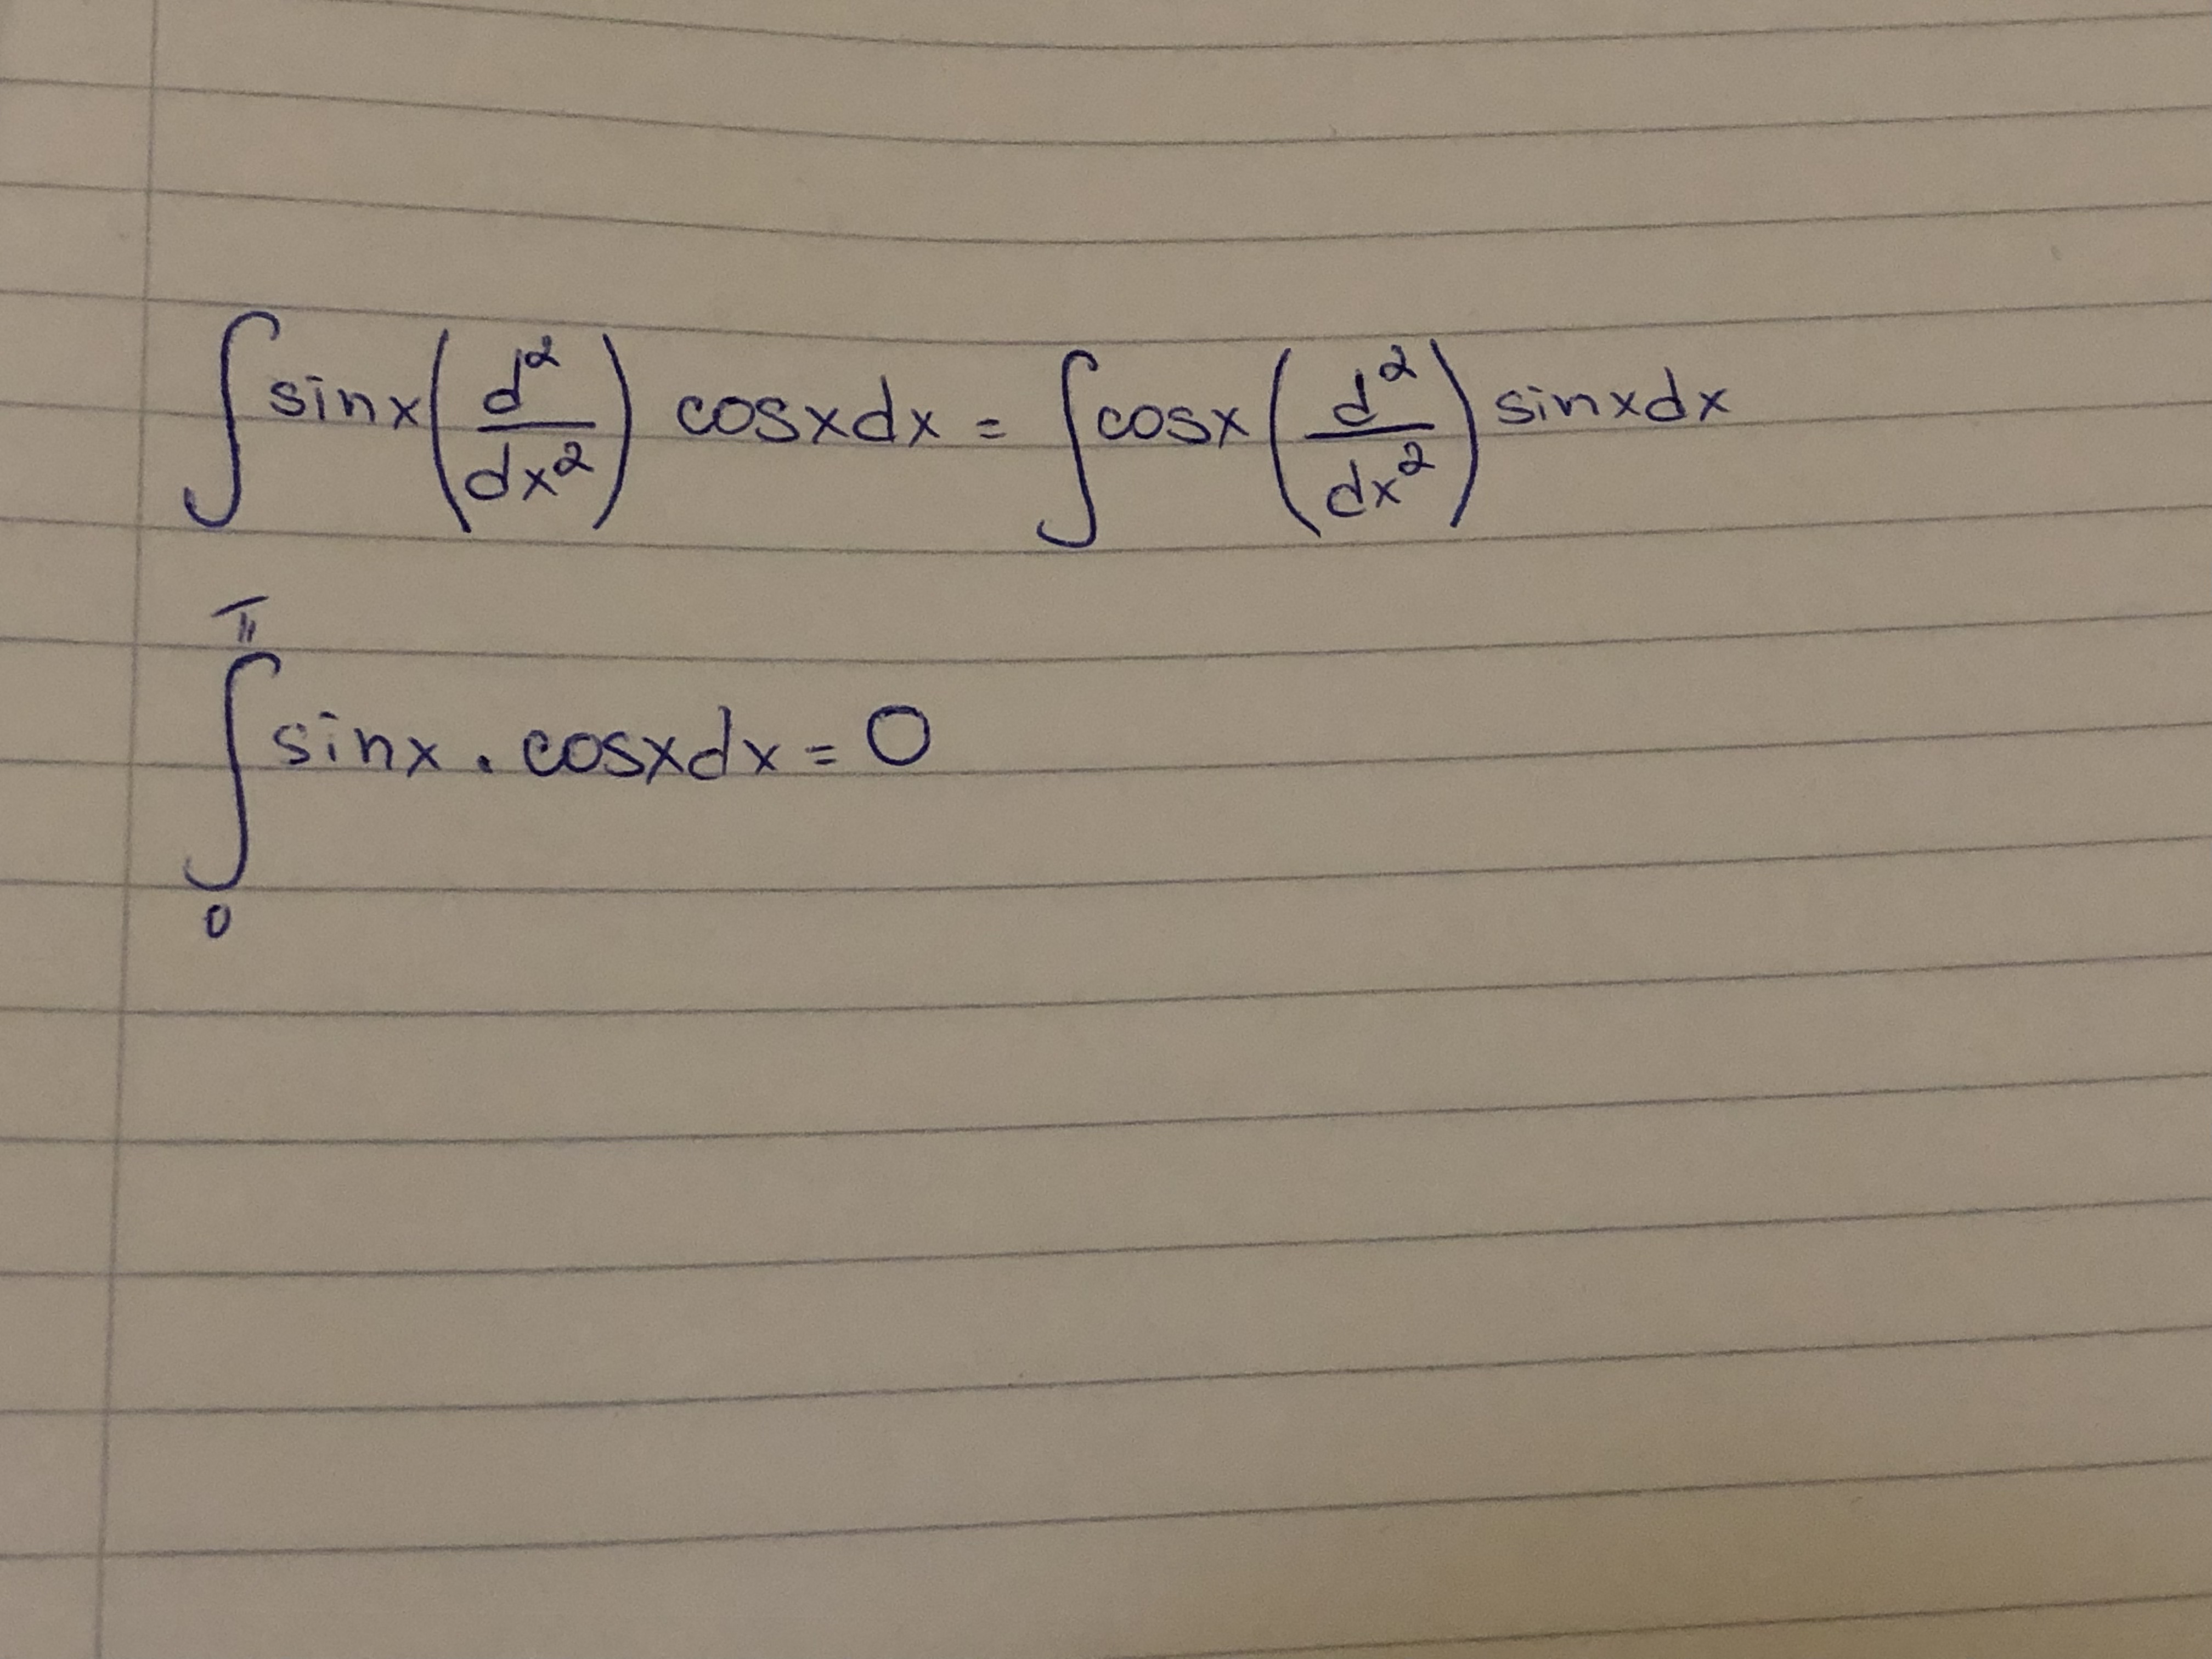 ∫ sinx (d²/dx²) cosxdx = ∫ cosx (d²/dx²) sinxdx
∫₀^π sinx . cosxdx = 0